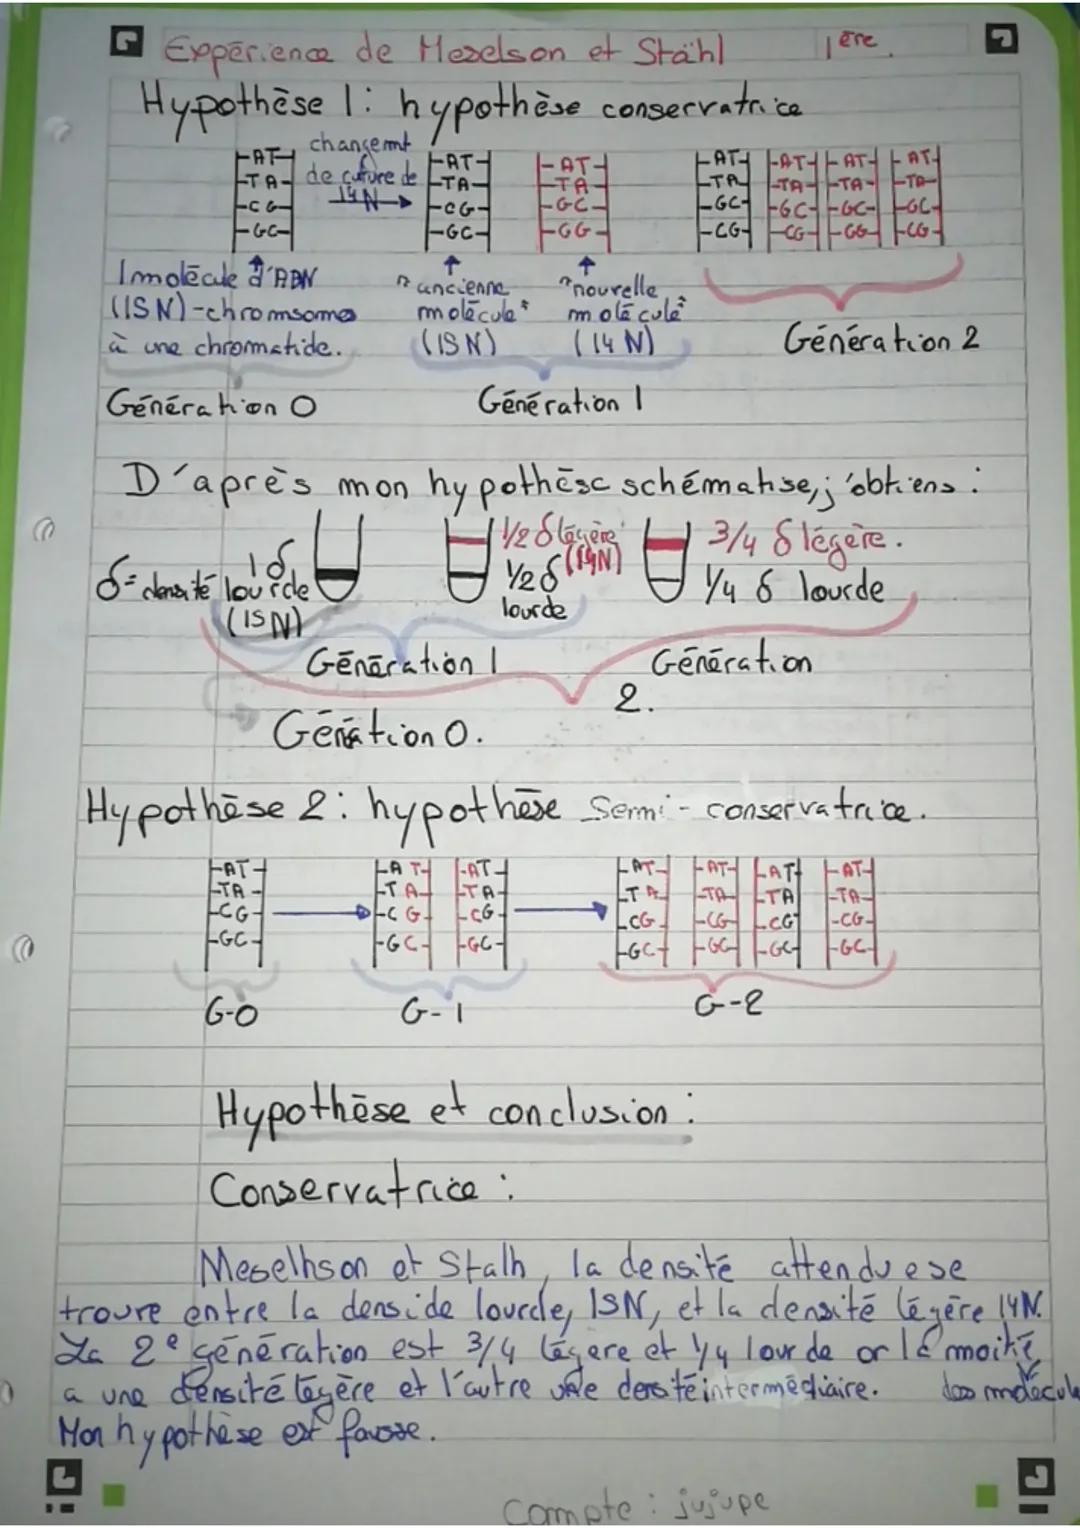 Expérience de Meselson et Stahl 1ère
Hypothèse 1: hypothèse conservatrice
changemnt
de culture de
14N
-AT- -AT- -AT- -AT- -AT- -AT- -AT-
-TA- -TA- -TA- -TA- -TA- -TA- -TA-
-CG- -CG- -GC- -GC- -GC- -GC- -GC-
-GC- -GC- -GG- -CG- -CG- -CG- -CG-
1 molécule d'ADN
(15N)-chromsome
à une chromatide.
ancienne
molécule
(15N)
nouvelle
molécule
(14N)
Génération 2
Génération 0
Génération 1
D'après mon hypothèse schématise, j'obtiens :
δ= densité
1 δ
lourde
(15N)
1/2 δ légère
(14N)
1/2 δ
lourde
3/4 δ légère.
1/4 δ lourde
Génération 1
Génération
2.
Génération 0.
Hypothèse 2: hypothèse Semi-conservatrice.
-AT- -AT- -AT- -AT- -AT- -AT- -AT-
-TA- -TA- -TA- -TA- -TA- -TA- -TA-
-CG- -CG- -CG- -CG- -CG- -CG- -CG-
-GC- -GC- -GC- -GC- -GG- -GC- -GC-
G-0
G-1
G-2
Hypothèse et conclusion :
Conservatrice :
Meselhson et Stalh, la densité attendu ese
trouve entre la denside lourde, 15N, et la densité légère 14N.
La 2e génération est 3/4 légere et 1/4 lourde or la moitié
des molécule
a une densité légère et l'autre une densité intermédiaire.
Mon hypothèse est fausse.
Compte : jujupe